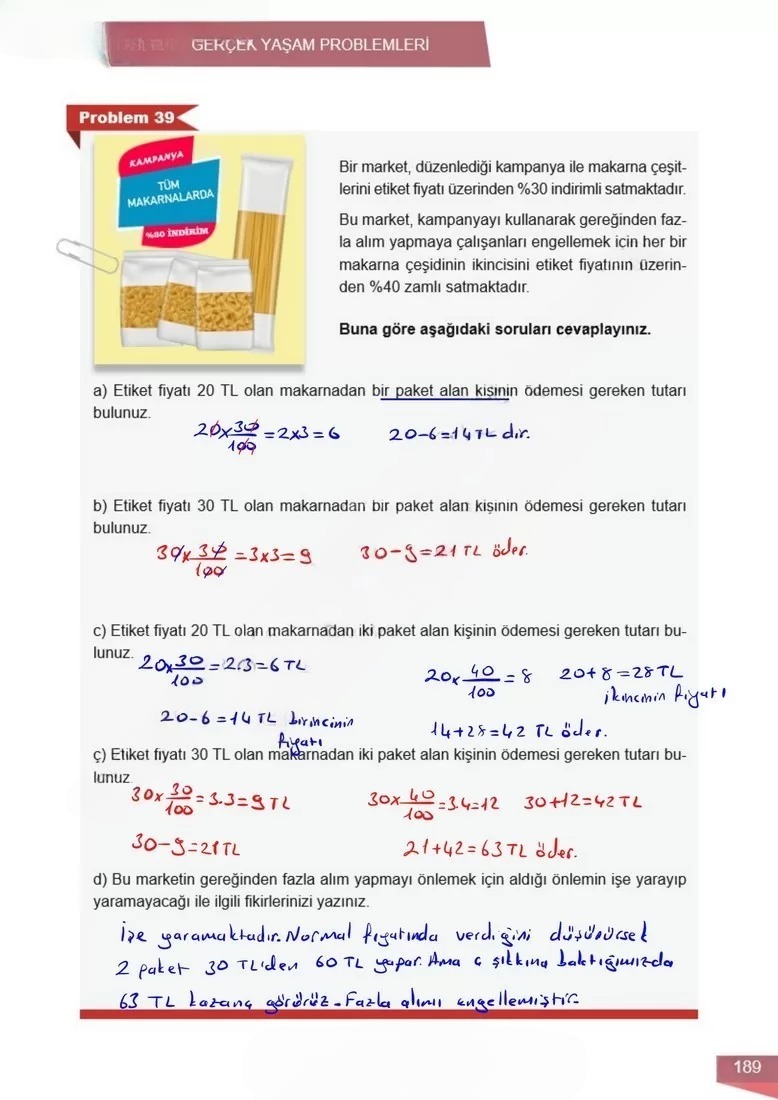 GERÇEK YAŞAM PROBLEMLERİ
Problem 39
KAMPANYA
TÜM
MAKARNALARDA
%30 İNDİRİM
Bir market, düzenlediği kampanya ile makarna çeşit-
lerini etiket fiyatı üzerinden %30 indirimli satmaktadır.
Bu market, kampanyayı kullanarak gereğinden faz-
la alım yapmaya çalışanları engellemek icin her bir
makarna çeşidinin ikincisini etiket fiyatının üzerin-
den %40 zamlı satmaktadır.
Buna göre aşağıdaki soruları cevaplayınız.
a) Etiket fiyatı 20 TL olan makarnadan bir paket alan kişinin ödemesi gereken tutarı
bulunuz.
20x30/100=2x3=6 20-6=14 TL dir.
b) Etiket fiyatı 30 TL olan makarnadan bir paket alan kişinin ödemesi gereken tutarı
bulunuz.
30x30/100=3x3=9 30-9=21 TL öder.
c) Etiket fiyatı 20 TL olan makarnadan iki paket alan kişinin ödemesi gereken tutarı bu-
lunuz.
20x30/100=2.3=6 TL 20x40/100=8 20+8=28 TL
ikincinin fiyatı
20-6=14 TL birincinin
fiyatı
14+28=42 TL öder.
ç) Etiket fiyatı 30 TL olan makarnadan iki paket alan kişinin ödemesi gereken tutarı bu-
lunuz.
30x30/100=3.3=9 TL 30x40/100=3.4=12 30+12=42 TL
30-9=21 TL 21+42=63 TL öder.
d) Bu marketin gereğinden fazla alım yapmayı önlemek için aldığı önlemin işe yarayıp
yaramayacağı ile ilgili fikirlerinizi yazınız.
İşe yaramaktadır. Normal fiyatında verdiğini düşünürsek
2 paket 30 TL'den 60 TL yapar. Ama ç şıkkına baktığımızda
63 TL kazanç görürüz. Fazla alımı engellemiştir.
189